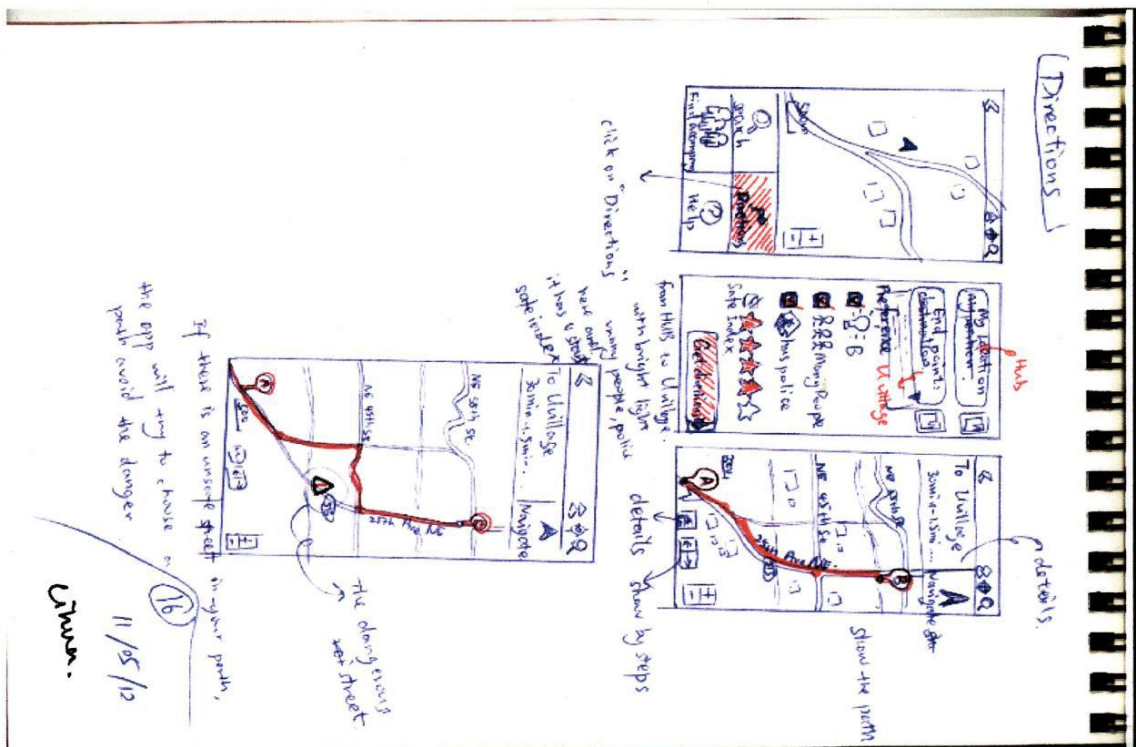 Directions
Search
Directions
Find accompany
Help
click on "Directions"
Hub
My Location
End point:
destination
Preference U village
B
Many People
has police
Safe Index
Get directions
from HUB to U village.
with bright light
many people, police
here and
it has 4 star
safe index
details.
To U village
30min-1.5min...
Navigate
NE 45th St.
25th Ave NE
A
B
show the path
details show by steps
To U village
30min-1.5min...
Navigate
NE 55th St.
NE 45th St.
25th Ave NE
A
the dangerous
street.
If there is an unsafe street in your path,
the app will try to choose a
path avoid the danger
16
11/05/12